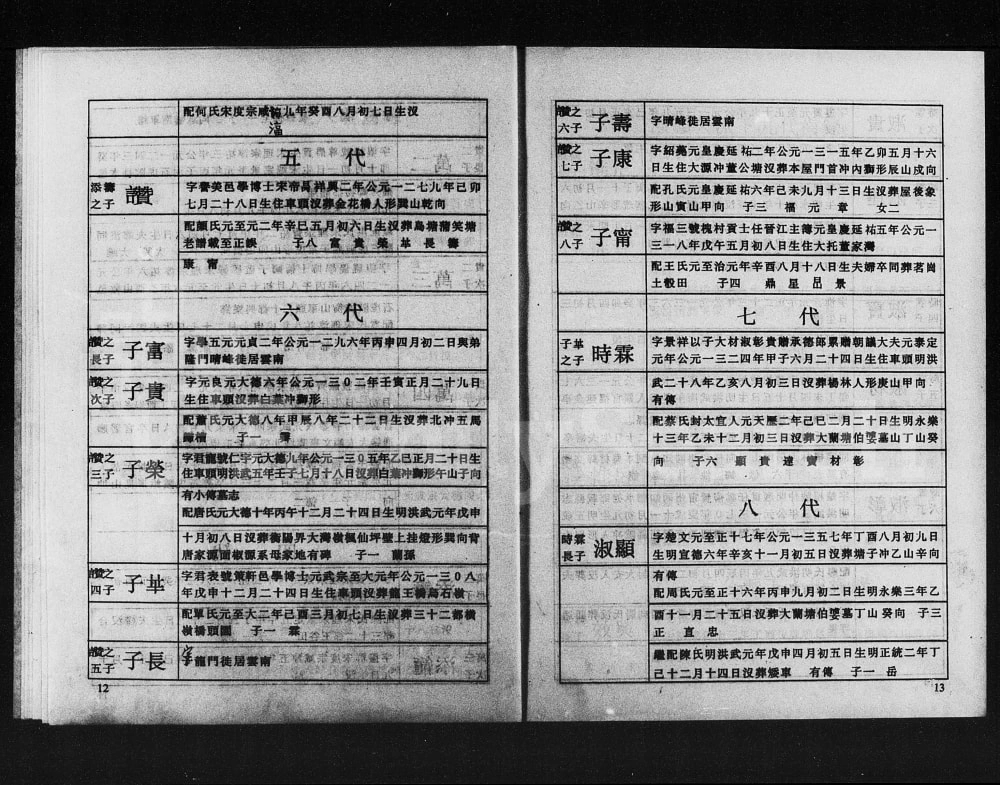 配何氏宋度宗咸淳九年癸酉八月初七日生沒
五代
添壽之子
讚
字譽美邑學博士宋帝昺祥興二年公元一二七九年己卯
七月二十八日生住車頭沒葬金花橋人形巽山乾向
配顏氏元至元二年辛巳五月初六日生沒葬烏塘蒲笑塘
老譜載至正誤 子八 富貴榮華長壽
康甯
六代
讚之長子
子富
字學五元元貞二年公元一二九六年丙申四月初二日與弟
隆門晴峰徙居雲南
讚之次子
子貴
字元良元大德六年公元一三0二年壬寅正月二十九日
生住車頭沒葬白葉冲獅形
配蕭氏元大德八年甲辰八年二十二日生沒葬北冲五馬
歸槽 子一 霽
讚之三子
子榮
字君龍號仁宇元大德九年公元一三0五年乙巳正月二十日生
住車頭明洪武五年壬子七月十八日沒葬白葉冲獅形午山子向
有小傳墓志
配唐氏元大德十年丙午十二月二十四日生明洪武元年戊申
十月初八日沒葬衡陽界大灣橫楓仙坪壁上挂燈形巽向背
唐家源面椒源系母家地有碑 子一 蘭孫
讚之四子
子華
字君表號策軒邑學博士元武宗至大元年公元一三0八
年戊申十二月二十四日生住車頭沒葬龍王橋烏石橫
配單氏元至大二年己酉三月初七日生沒葬三十二都橫
橫橋頭園 子一 霖
讚之五子
子長
字龍門徙居雲南
12
讚之六子
子壽
字晴峰徙居雲南
讚之七子
子康
字紹堯元皇慶延祐二年公元一三一五年乙卯五月十六
日生住大源冲董公塘沒葬本屋門首冲內獅形辰山戌向
配孔氏元皇慶延祐六年己未九月十三日生沒葬屋後象
形山寅山甲向 子三 福元章 女二
讚之八子
子甯
字福三號槐村貢士任晉江主簿元皇慶延祐五年公元一
三一八年戊午五月初八日生住大托董家灣
配王氏元至治元年辛酉八月十八日生夫婦卒同葬茗崗
土毂田 子四 鼎星呂景
七代
子華之子
時霖
字景祥以子大材淑彰貴贈承德郎累贈朝議大夫元泰定
元年公元一三二四年甲子六月二十四日生住車頭明洪
武二十八年乙亥八月初三日沒葬楊林人形庚山甲向
有傳
配蔡氏封太宜人元天歷二年己巳二月二十日生明永樂
十三年乙未十二月初三日沒葬大蘭塘伯婆墓山丁山癸
向 子六 顯貴達寶材彰
八代
時霖長子
淑顯
字楚文元至正十七年公元一三五七年丁酉八月初九日
生明宣德六年辛亥十一月初五日沒葬塘子冲乙山辛向
有傳
配周氏元至正十六年丙申九月初二日生明永樂三年乙
酉十一月二十五日沒葬大蘭塘伯婆墓丁山癸向 子三
正直忠
繼配陳氏明洪武元年戊申四月初五日生明正統二年丁
己十二月十四日沒葬矮車 有傳 子一 岳
13